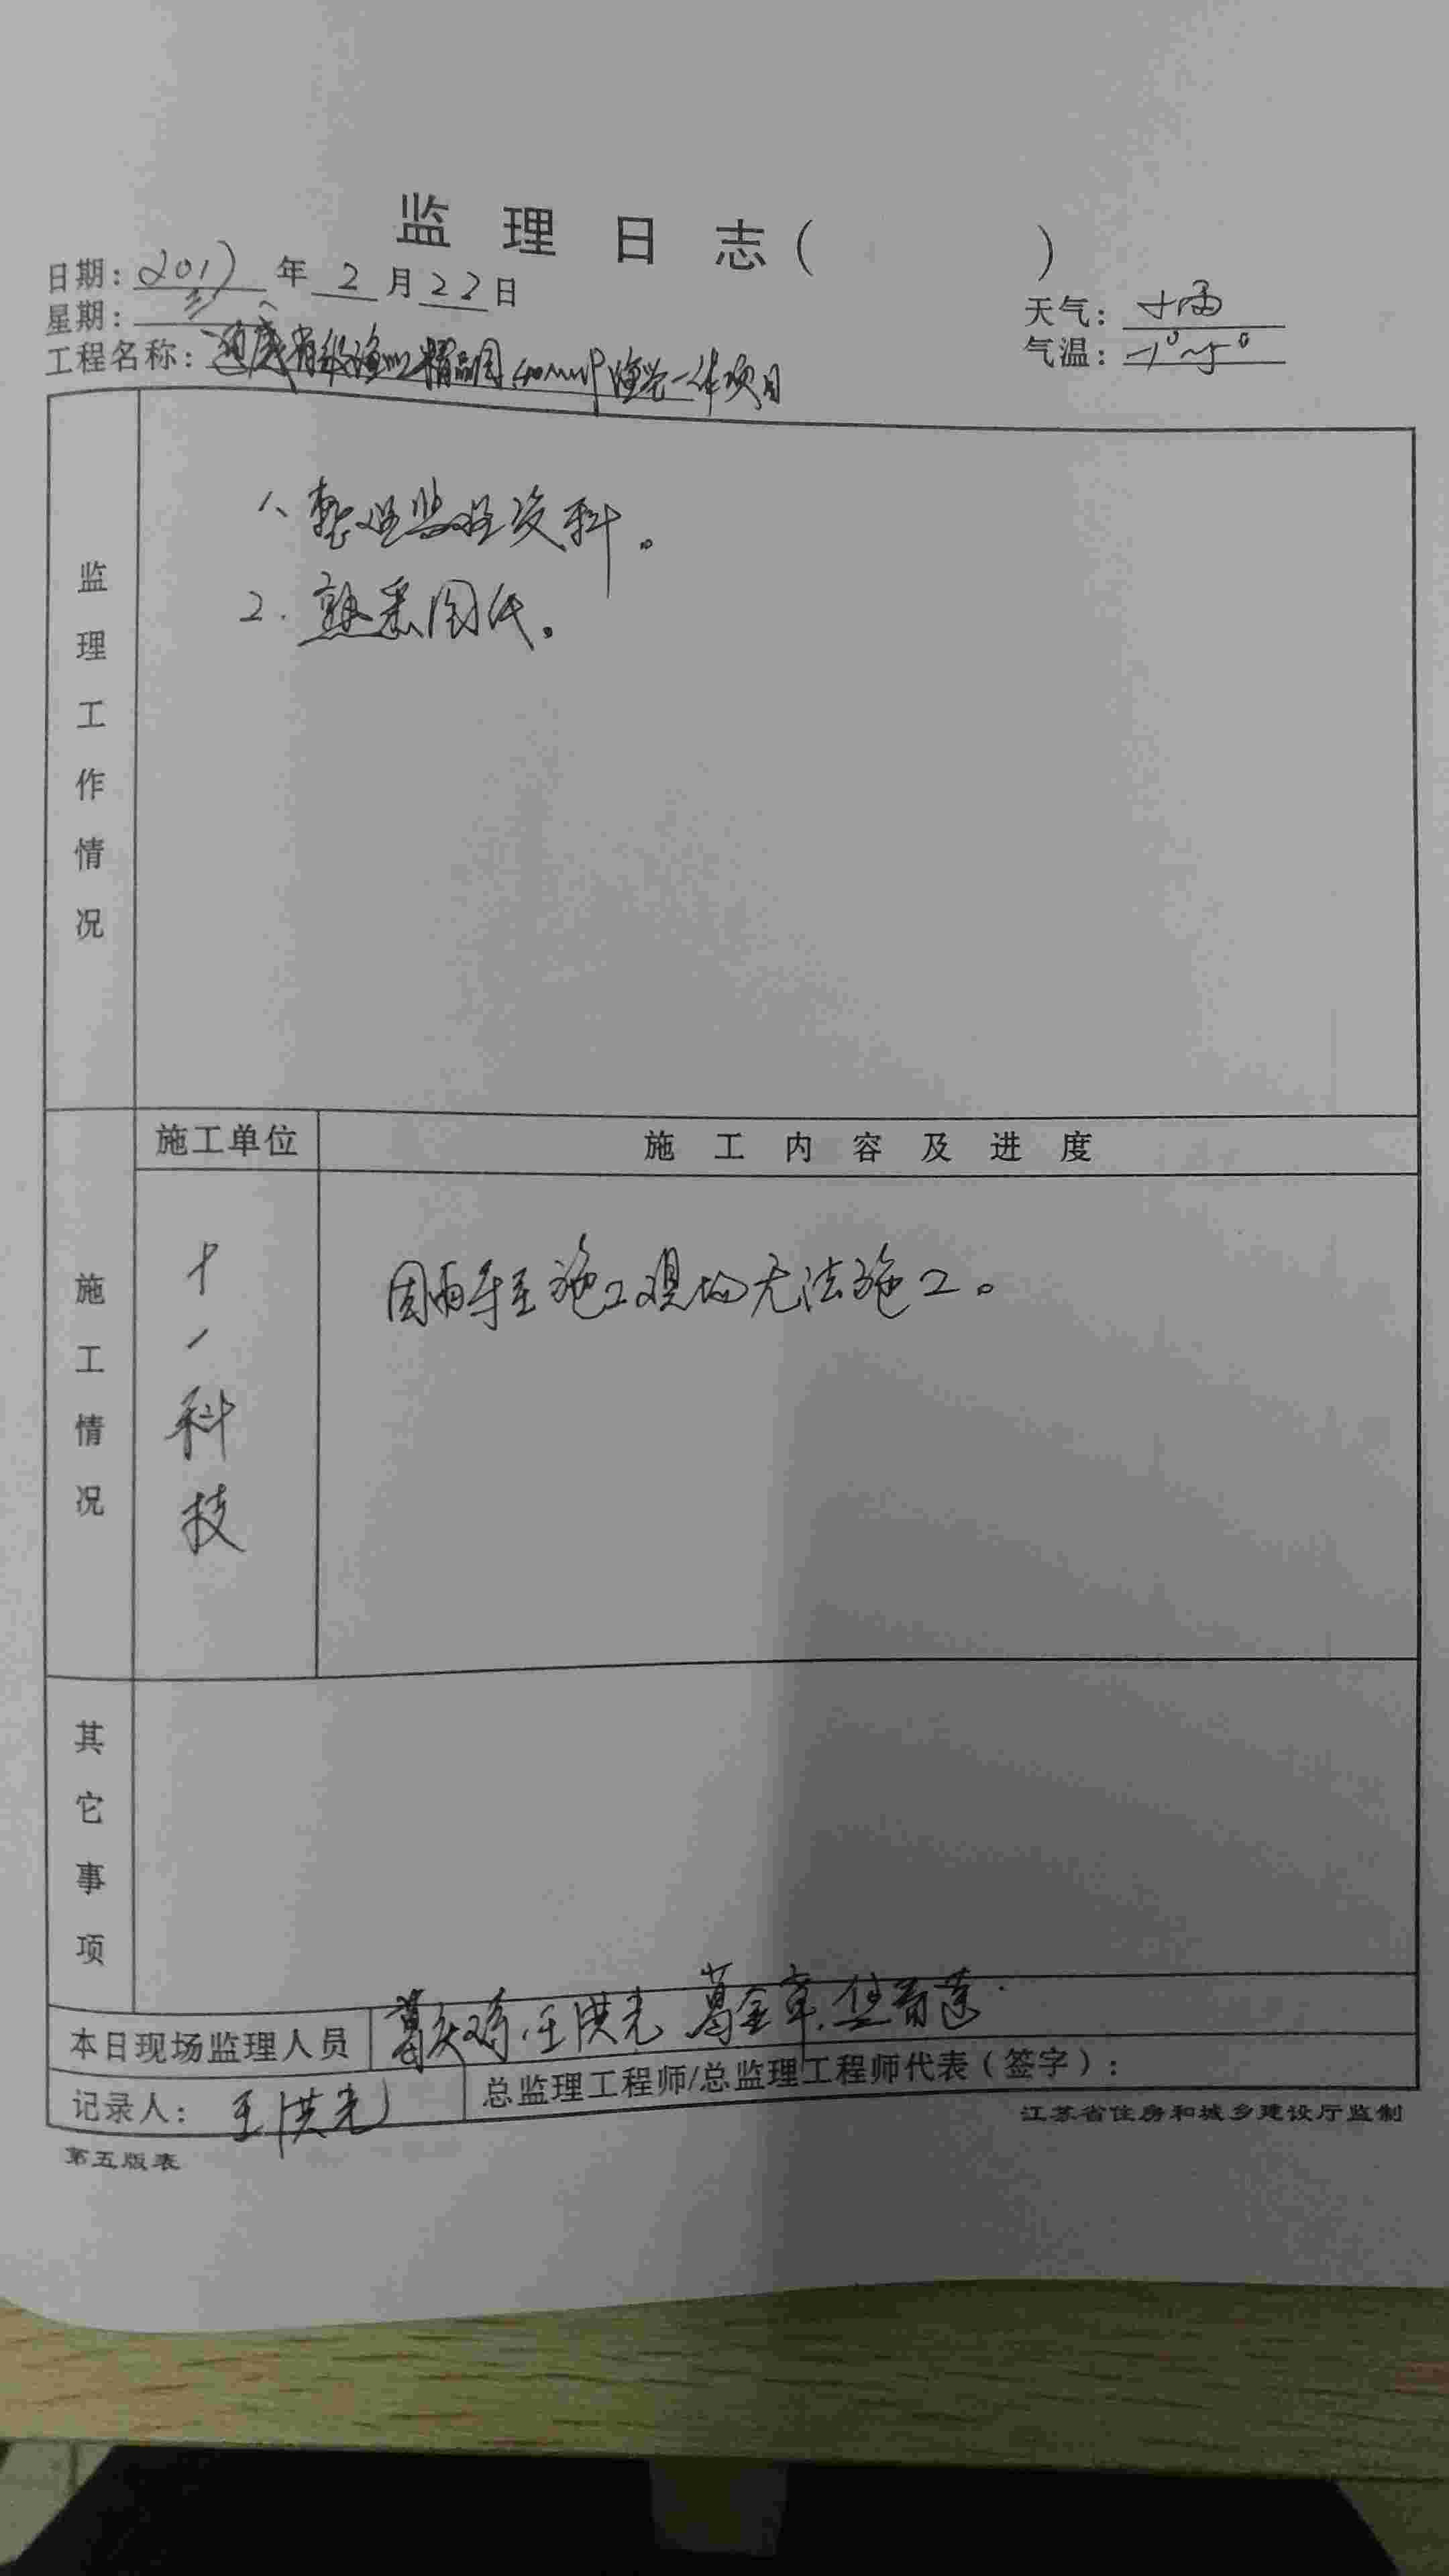 监 理 日 志（ ）
日期：2017年2月22日
星期：三
天气：小雨
气温：-1°~5°
工程名称：省级渔业精品园40MWP渔光一体项目
监理工作情况
1、整理监理资料。
2.熟悉图纸。
施工情况
施工单位
施 工 内 容 及 进 度
十一科技
因雨导至施工现场无法施工。
其它事项
本日现场监理人员
王洪光 葛金章
记录人：王洪光
总监理工程师/总监理工程师代表（签字）：
江苏省住房和城乡建设厅监制
第五版表